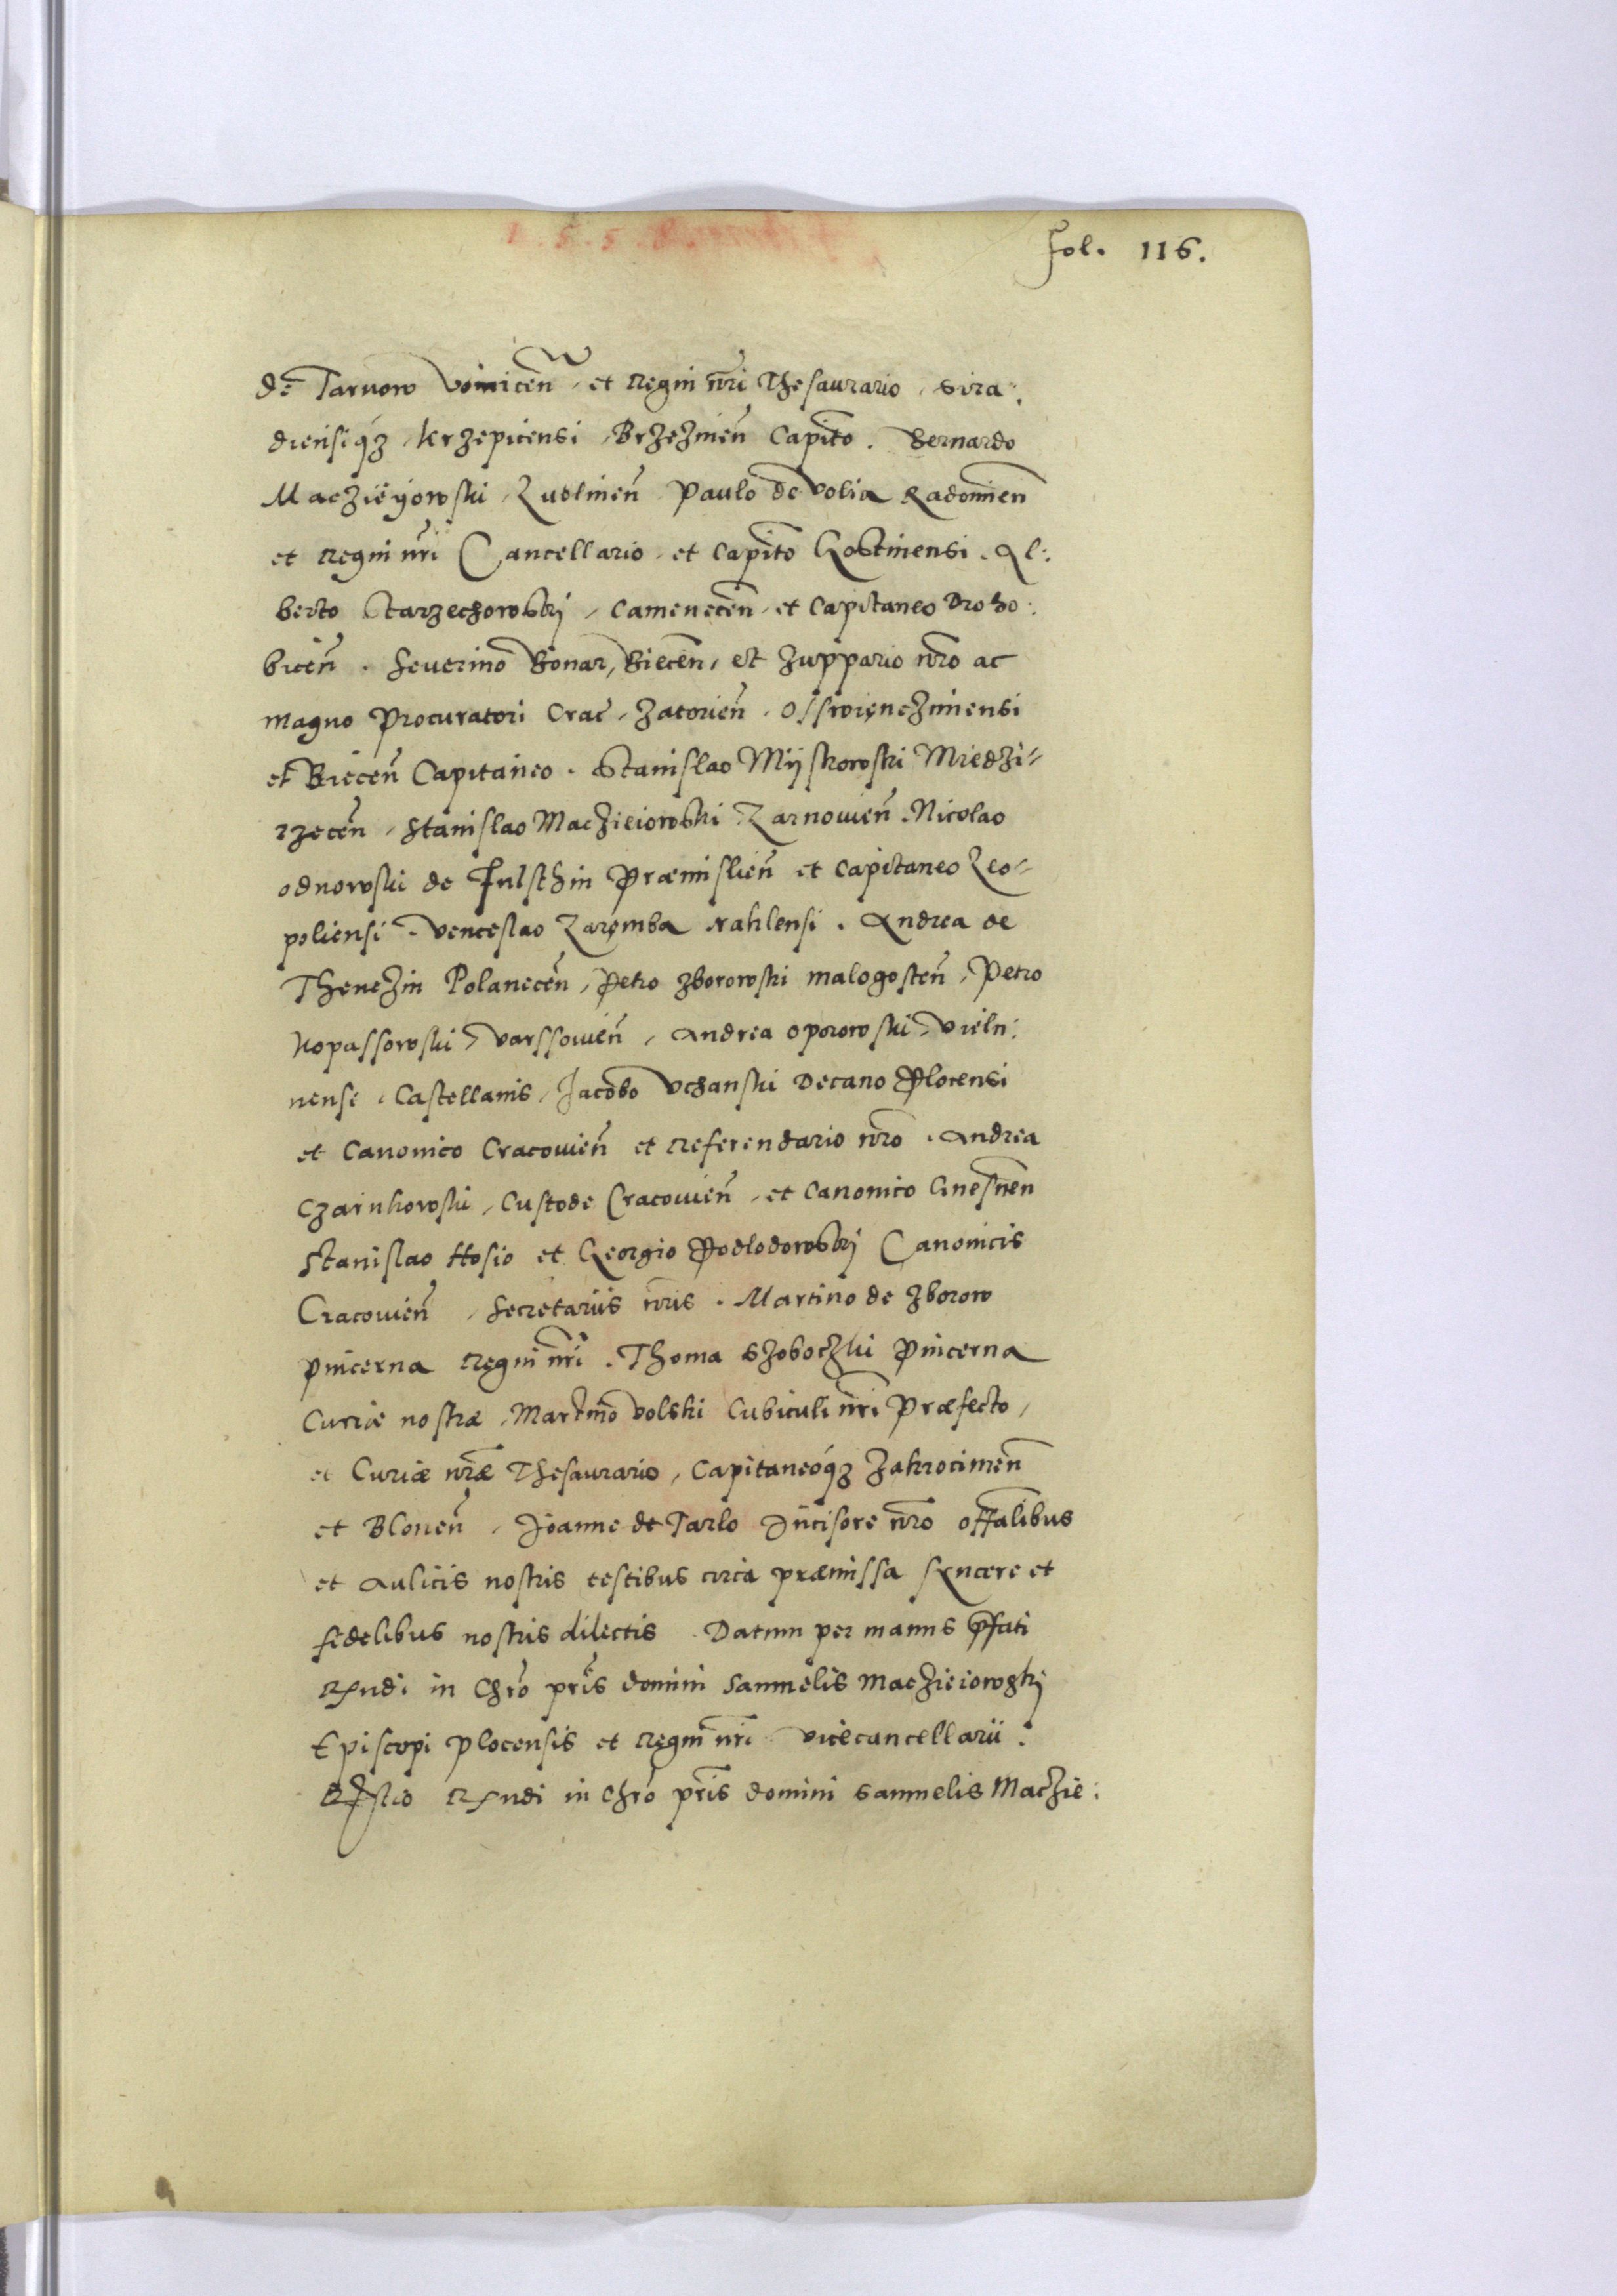 fol. 116.
de Tarnow Voinicen̄ et Regni nr̄i Thesaurario, Sira:
diensiq́ȝ, Krzepicensi, Brzezinen̄ Capit̄o. Bernardo
Macziëÿowski, Lublinen̄ Paulo de Volia Radomien̄
et Regni nr̄i Cancellario, et Capit̄o Gostinensi. Al:
berto Starzechowskj, Camenecen̄, et Capitaneo Droho:
bicen̄. Seuerino Bonar, Biecen̄, et Zuppario nr̄o ac
magno Procuratori Crac̄, Zatorien̄, Osswięnczimensi
et Biecen̄ Capitaneo. Stanislao Mijskowski Miedzi=
rzecen̄, Stanislao Maczieiowski Zarnowien̄. Nicolao
odnowski de Fulsthin Præmislien̄ et Capitaneo Leo=
poliensi. Venceslao Zaręmba Naklensi. Andrea de
Thenczin Polanecen̄, Petro Zborowski malogosten̄, Petro
Kopassowski Varssouien̄, Andrea Oporowski Vieln:
nense, Castellanis, Jacobo Vchanski Decano Plocensi
et Canonico Cracouien̄ et Referendario nr̄o. Andrea
Czarnkowski, Custode Cracouien̄, et Canonico Gnesnen̄
Stanislao Hosio et Georgio Podlodowskj Canonicis
Cracouien̄, Secretariis nr̄is. Martino de Zborow
pincerna Regni nr̄i. Thoma Szoboczki Pincerna
Curiæ nostræ, Martino Volski Cubiculi nr̄i Præfecto,
et Curiæ nr̄æ Thesaurario, Capitaneóq́ȝ Zakrocimen̄
et Blonen̄, Joanne de Tarlo Incisore nr̄o offalibus
et Aulicis nostris testibus circa præmissa syncere et
fidelibus nostris dilectis. Datum per manus p̄fati
Rndi in Chr̄o pr̄is domini Samuelis Maczieiowskj
Episcopi Plocensis et Regni nr̄i Vicecancellarii.
Rndi in Chr̄o pr̄is domini Samuelis Maczie: